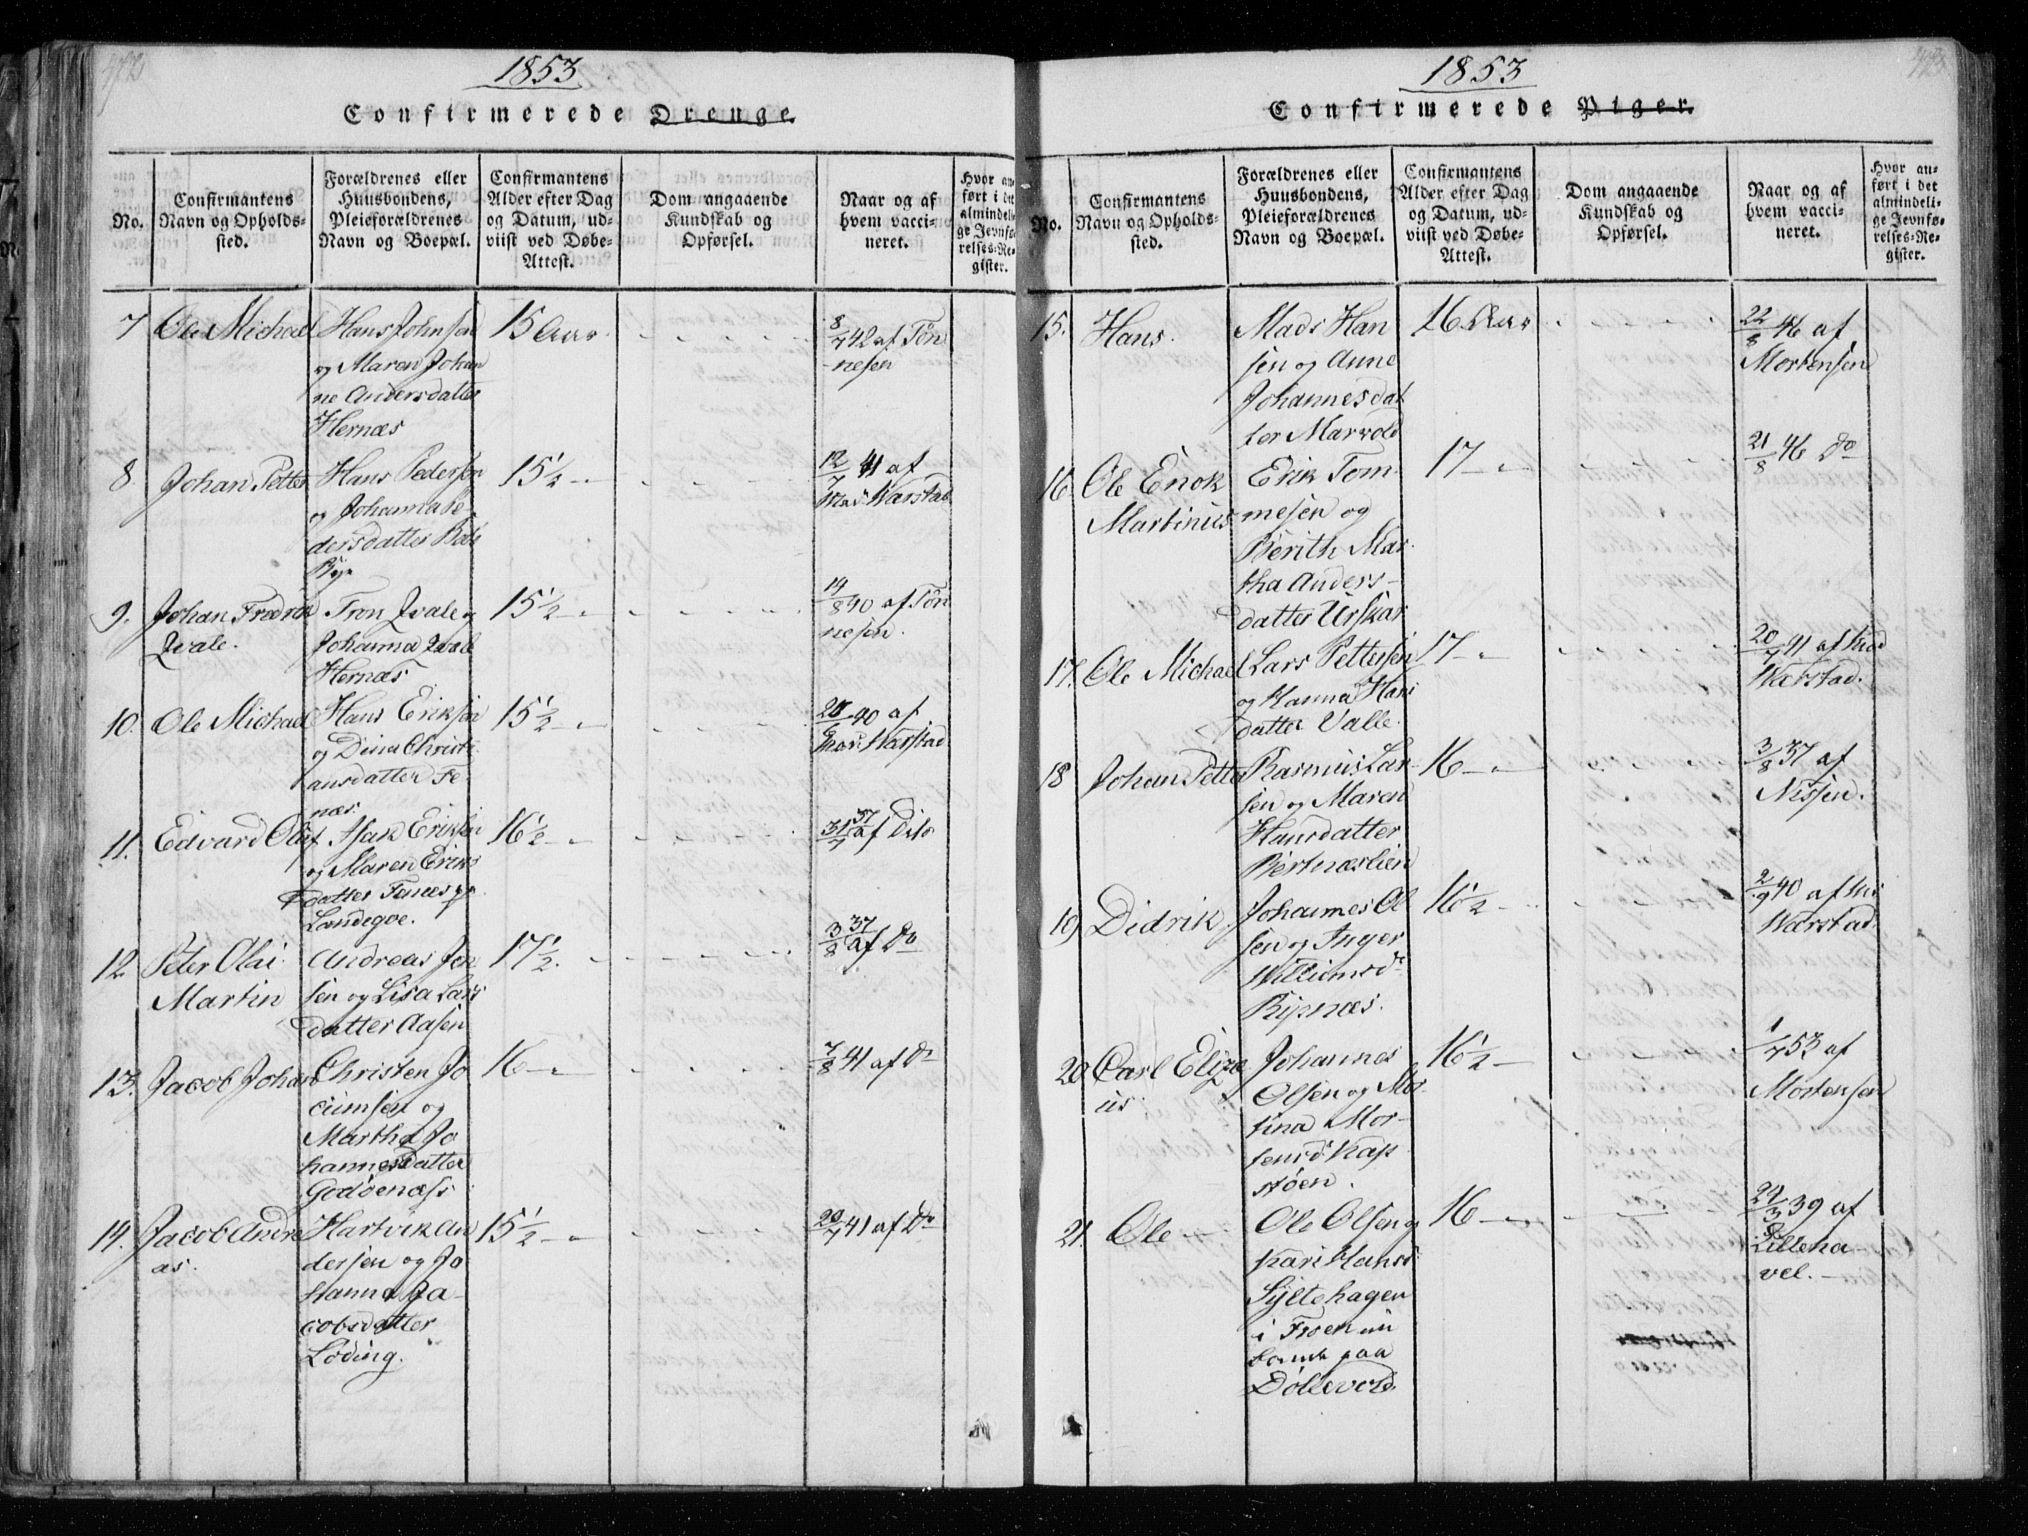 1853
Confirmerede Drenge.
No.
Confirmantens
Navn og Opholds-
sted.
Forældrenes eller
Huusbondens,
Pleieforældrenes
Navn og Boepæl.
Confirmantens
Alder efter Dag
og Datum, ud-
viist ved Døbe-
Attest.
Dom angaaende
Kundskab og
Opførsel.
Naar og af
hvem vacci-
neret.
Hvor an-
ført i det
almindeli-
ge Jevnfø-
relses-Re-
gister.
7
Ole Michael
Hans Johnsen
og Maren Johan
ne Andersdatter
Hernæs
15 Aar
8/7 42 af Tøn
nesen
8
Johan Petter
Hans Pedersen
og Johanna Pe
dersdatter
15 1/2
12/7 41 af
Harstad
9.
Johan Fredrik
Qvale.
Tron Qvale og
Johanna Qvale
Hernæs
15 1/2
14/8 40 af Tøn
nesen.
10.
Ole Michael
Hans Eriksen
og Dina Christi
ansdatter Fe-
næs.
15 1/2
40 af
Harstad
11.
Edvard Olaf
Isak Eriksen
og Maren Eriks
datter Fenes
Landegoe.
16 1/2
31/7 37 af Dito
12
Peter Olai
Martin
Andreas Jen
sen og Lisa Lars
datter Aasen
17 1/2
3/8 37 af Do
13.
Jacob Johan
Christen Jo
cumsen og
Martha Jo
hannesdatter
Godøenæss
16
7/8 41 af Do
14.
Jacob Andre
as.
Hartvik An
dersen og Jo
hanna Ja-
cobsdatter
Løding.
15 1/2
20/7 41 af Do
1853
Confirmerede Piger.
No.
Confirmantens
Navn og Opholds-
sted.
Forældrenes eller
Huusbondens,
Pleieforældrenes
Navn og Boepæl.
Confirmantens
Alder efter Dag
og Datum, ud-
viist ved Døbe-
Attest.
Dom angaaende
Kundskab og
Opførsel.
Naar og af
hvem vacci-
neret.
Hvor an-
ført i det
almindeli-
ge Jevnfø-
relses-Re-
gister.
15.
Hans
Mads Han
sen og Anne
Johannesdat
ter Marvold
16 Aar
22/8 46 af
Mortensen
16
Ole Enok
Martinus
Erik Tom
mesen og
Berith Mar
tha Anders-
datter Urskar
17
21/8 46 Do
17.
Ole Michael
Lars Pettersen
og Hanna Hans
datter Valle.
17
20/7 41 af
Harstad.
18
Johan Petter
Rasmus Lar-
sen og Maren
Hansdatter
Bertnæslien
16
3/8 37 af
Nissen.
19
Didrik
Johannes Ol
sen og Inger
Willumsdr
Ripnæs.
16 1/2
2/9 40 af
Harstad
20
Carl Elize
us.
Johannes
Olsen og Mar
tina Mor-
tensd
støen.
16 1/2
1/7 53 af
Mortensen
21.
Ole
Ole Olsen og
Kari Hansd
Syltehagen
i Froen nu
paa
Døllevold
16
39 af
Lillena-
vel.